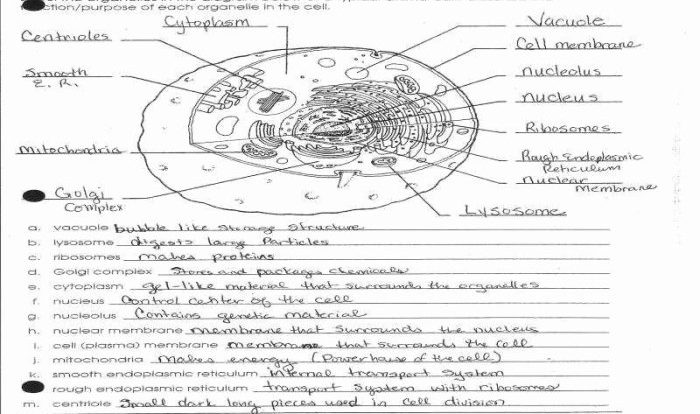 function/purpose of each organelle in the cell.
Cytoplasm
Vacuole
Centrioles
Cell membrane
Smooth
E. R.
nucleolus
nucleus
Ribosomes
Mitochondria
Rough Endoplasmic
Reticulum
nuclear
membrane
Golgi
Complex
Lysosome
a. vacuole bubble like storage structure
b. lysosome digests large Particles
c. ribosomes makes proteins
d. Golgi complex Stores and packages chemicals
e. cytoplasm gel-like material that surrounds the organelles
f. nucleus Control center of the cell
g. nucleolus Contains genetic material
h. nuclear membrane membrane that surrounds the nucleus
i. cell (plasma) membrane membrane that surrounds the cell
j. mitochondria makes energy (Powerhouse of the cell)
k. smooth endoplasmic reticulum internal transport system
rough endoplasmic reticulum transport system with ribosomes
m. centriole Small dark long pieces used in cell division